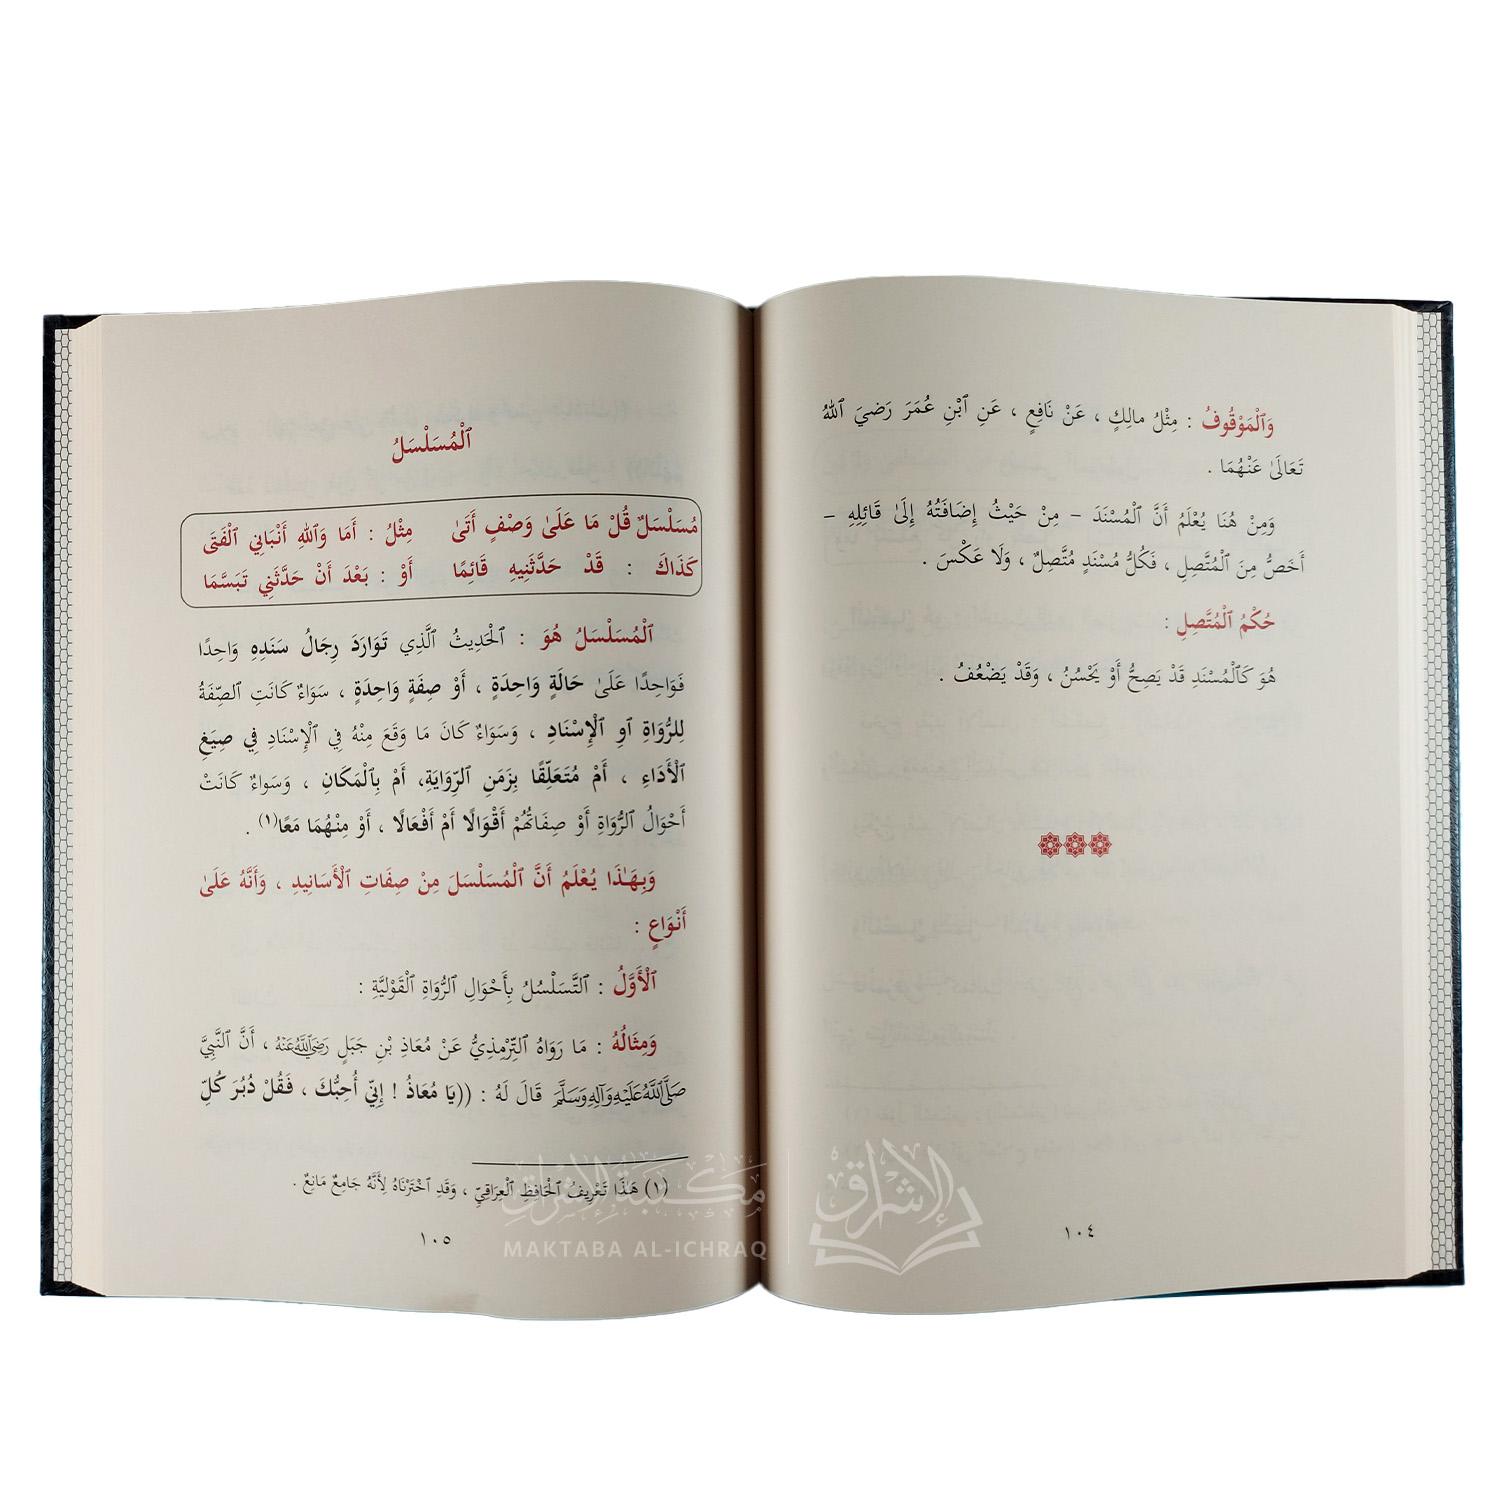 وَٱلْمَوْقُوفُ : مِثْلُ مالِكٍ ، عَنْ نَافِعٍ ، عَنِ ٱبْنِ عُمَرَ رَضيَ ٱللهُ
تَعَالَىٰ عَنْهُمَا .
وَمِنْ هُنَا يُعْلَمُ أَنَّ ٱلْمُسْنَدَ – مِنْ حَيْثُ إِضَافَتُهُ إِلَىٰ قَائِلِهِ –
أَخَصُّ مِنَ ٱلْمُتَّصِلِ ، فَكُلُّ مُسْنَدٍ مُتَّصِلٌ ، وَلَا عَكْسَ .
حُكْمُ ٱلْمُتَّصِلِ :
هُوَ كَٱلْمُسْنَدِ قَدْ يَصِحُّ أَوْ يَحْسُنُ ، وَقَدْ يَضْعُفُ .
١٠٤
ٱلْمُسَلْسَلُ
مُسَلْسَلٌ قُلْ مَا عَلَىٰ وَصْفٍ أَتَىٰ مِثْلُ : أَمَا وَٱللهِ أَنْبَانِي ٱلْفَتَى
كَذَاكَ : قَدْ حَدَّثَنِيهِ قَائِمًا أَوْ : بَعْدَ أَنْ حَدَّثَنِي تَبَسَّمَا
ٱلْمُسَلْسَلُ هُوَ : ٱلْحَدِيثُ ٱلَّذِي تَوَارَدَ رِجَالُ سَنَدِهِ وَاحِدًا
فَوَاحِدًا عَلَىٰ حَالَةٍ وَاحِدَةٍ ، أَوْ صِفَةٍ وَاحِدَةٍ ، سَوَاءٌ كَانَتِ ٱلصِّفَةُ
لِلرُّوَاةِ أَوِ ٱلْإِسْنَادِ ، وَسَوَاءٌ كَانَ مَا وَقَعَ مِنْهُ فِي ٱلْإِسْنَادِ فِي صِيَغِ
ٱلْأَدَاءِ ، أَمْ مُتَعَلِّقًا بِزَمَنِ ٱلرِّوَايَةِ، أَمْ بِٱلْمَكَانِ ، وَسَوَاءٌ كَانَتْ
أَحْوَالُ ٱلرُّوَاةِ أَوْ صِفَاتُهُمْ أَقْوَالًا أَمْ أَفْعَالًا ، أَوْ مِنْهُمَا مَعًا(١) .
وَبِهَـٰذَا يُعْلَمُ أَنَّ ٱلْمُسَلْسَلَ مِنْ صِفَاتِ ٱلْأَسَانِيدِ ، وَأَنَّهُ عَلَىٰ
أَنْوَاعٍ :
ٱلْأَوَّلُ : ٱلتَّسَلْسُلُ بِأَحْوَالِ ٱلرُّوَاةِ ٱلْقَوْلِيَّةِ :
وَمِثَالُهُ : مَا رَوَاهُ ٱلتِّرْمِذِيُّ عَنْ مُعَاذِ بْنِ جَبَلٍ رَضِيَ اللَّهُ عَنْهُ ، أَنَّ ٱلنَّبِيَّ
صَلَّى اللَّهُ عَلَيْهِ وَآلِهِ وَسَلَّمَ قَالَ لَهُ : ((يَا مُعَاذُ ! إِنِّي أُحِبُّكَ ، فَقُلْ دُبُرَ كُلِّ
(١) هَـٰذَا تَعْرِيفُ ٱلْحَافِظِ ٱلْعِرَاقِيِّ ، وَقَدِ ٱخْتَرْنَاهُ لِأَنَّهُ جَامِعٌ مَانِعٌ .
١٠٥
مكتبة الإشراق
MAKTABA AL-ICHRAQ
الإشراق